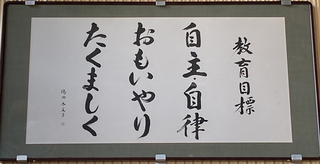 教育目標
自主・自律
おもいやり
たくましく